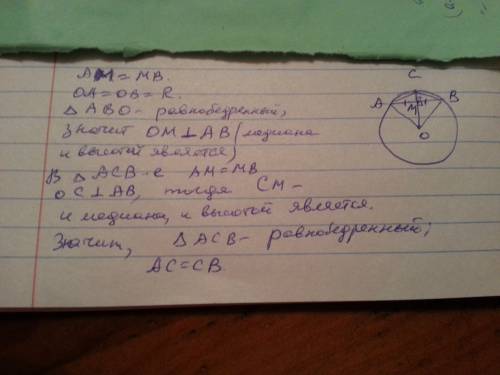 AM = MB.
OA = OB = R.
△ABO - равнобедренный,
значит OM ⊥ AB (медиана
и высотой является)
В △ACB-е AM = MB
OC ⊥ AB, тогда CM -
и медиана, и высотой является.
Значит, △ACB - равнобедренный;
AC = CB.
C
A
M
B
O